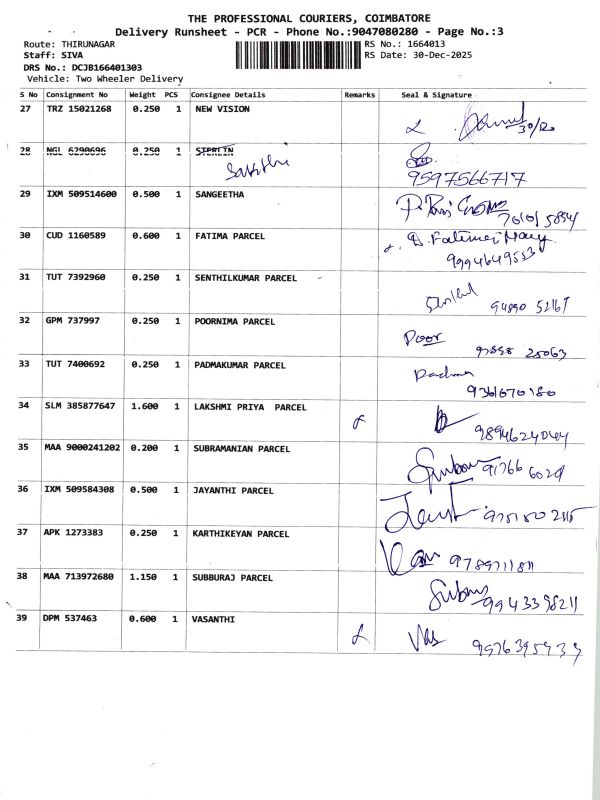 THE PROFESSIONAL COURIERS, COIMBATORE
Delivery Runsheet - PCR - Phone No.:9047080280 - Page No.:3
Route: THIRUNAGAR RS No.: 1664013
Staff: SIVA RS Date: 30-Dec-2025
DRS No.: DCJB166401303
Vehicle: Two Wheeler Delivery
S No Consignment No Weight PCS Consignee Details Remarks Seal & Signature
27 TRZ 15021268 0.250 1 NEW VISION
30/12
28 NGL 6290696 0.250 1 STERLIN
Sakthi
9597566717
29 IXM 509514600 0.500 1 SANGEETHA
30 CUD 1160589 0.600 1 FATIMA PARCEL
D. Fatima Mary
9994649553
31 TUT 7392960 0.250 1 SENTHILKUMAR PARCEL
Senthil 94890 52167
32 GPM 737997 0.250 1 POORNIMA PARCEL
Poor
33 TUT 7400692 0.250 1 PADMAKUMAR PARCEL
Padma
9361670180
34 SLM 385877647 1.600 1 LAKSHMI PRIYA PARCEL
9894624044
35 MAA 9000241202 0.200 1 SUBRAMANIAN PARCEL
36 IXM 509584308 0.500 1 JAYANTHI PARCEL
37 APK 1273383 0.250 1 KARTHIKEYAN PARCEL
38 MAA 713972680 1.150 1 SUBBURAJ PARCEL
9943398211
39 DPM 537463 0.600 1 VASANTHI
Vas